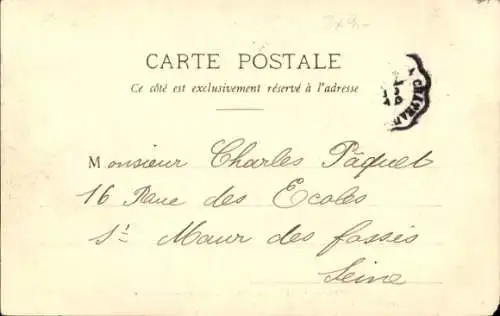 7x9,-
CARTE POSTALE
Ce côté est exclusivement réservé à l'adresse
Monsieur Charles Pâquet
16 Rue des Ecoles
St Maur des fossés
Seine